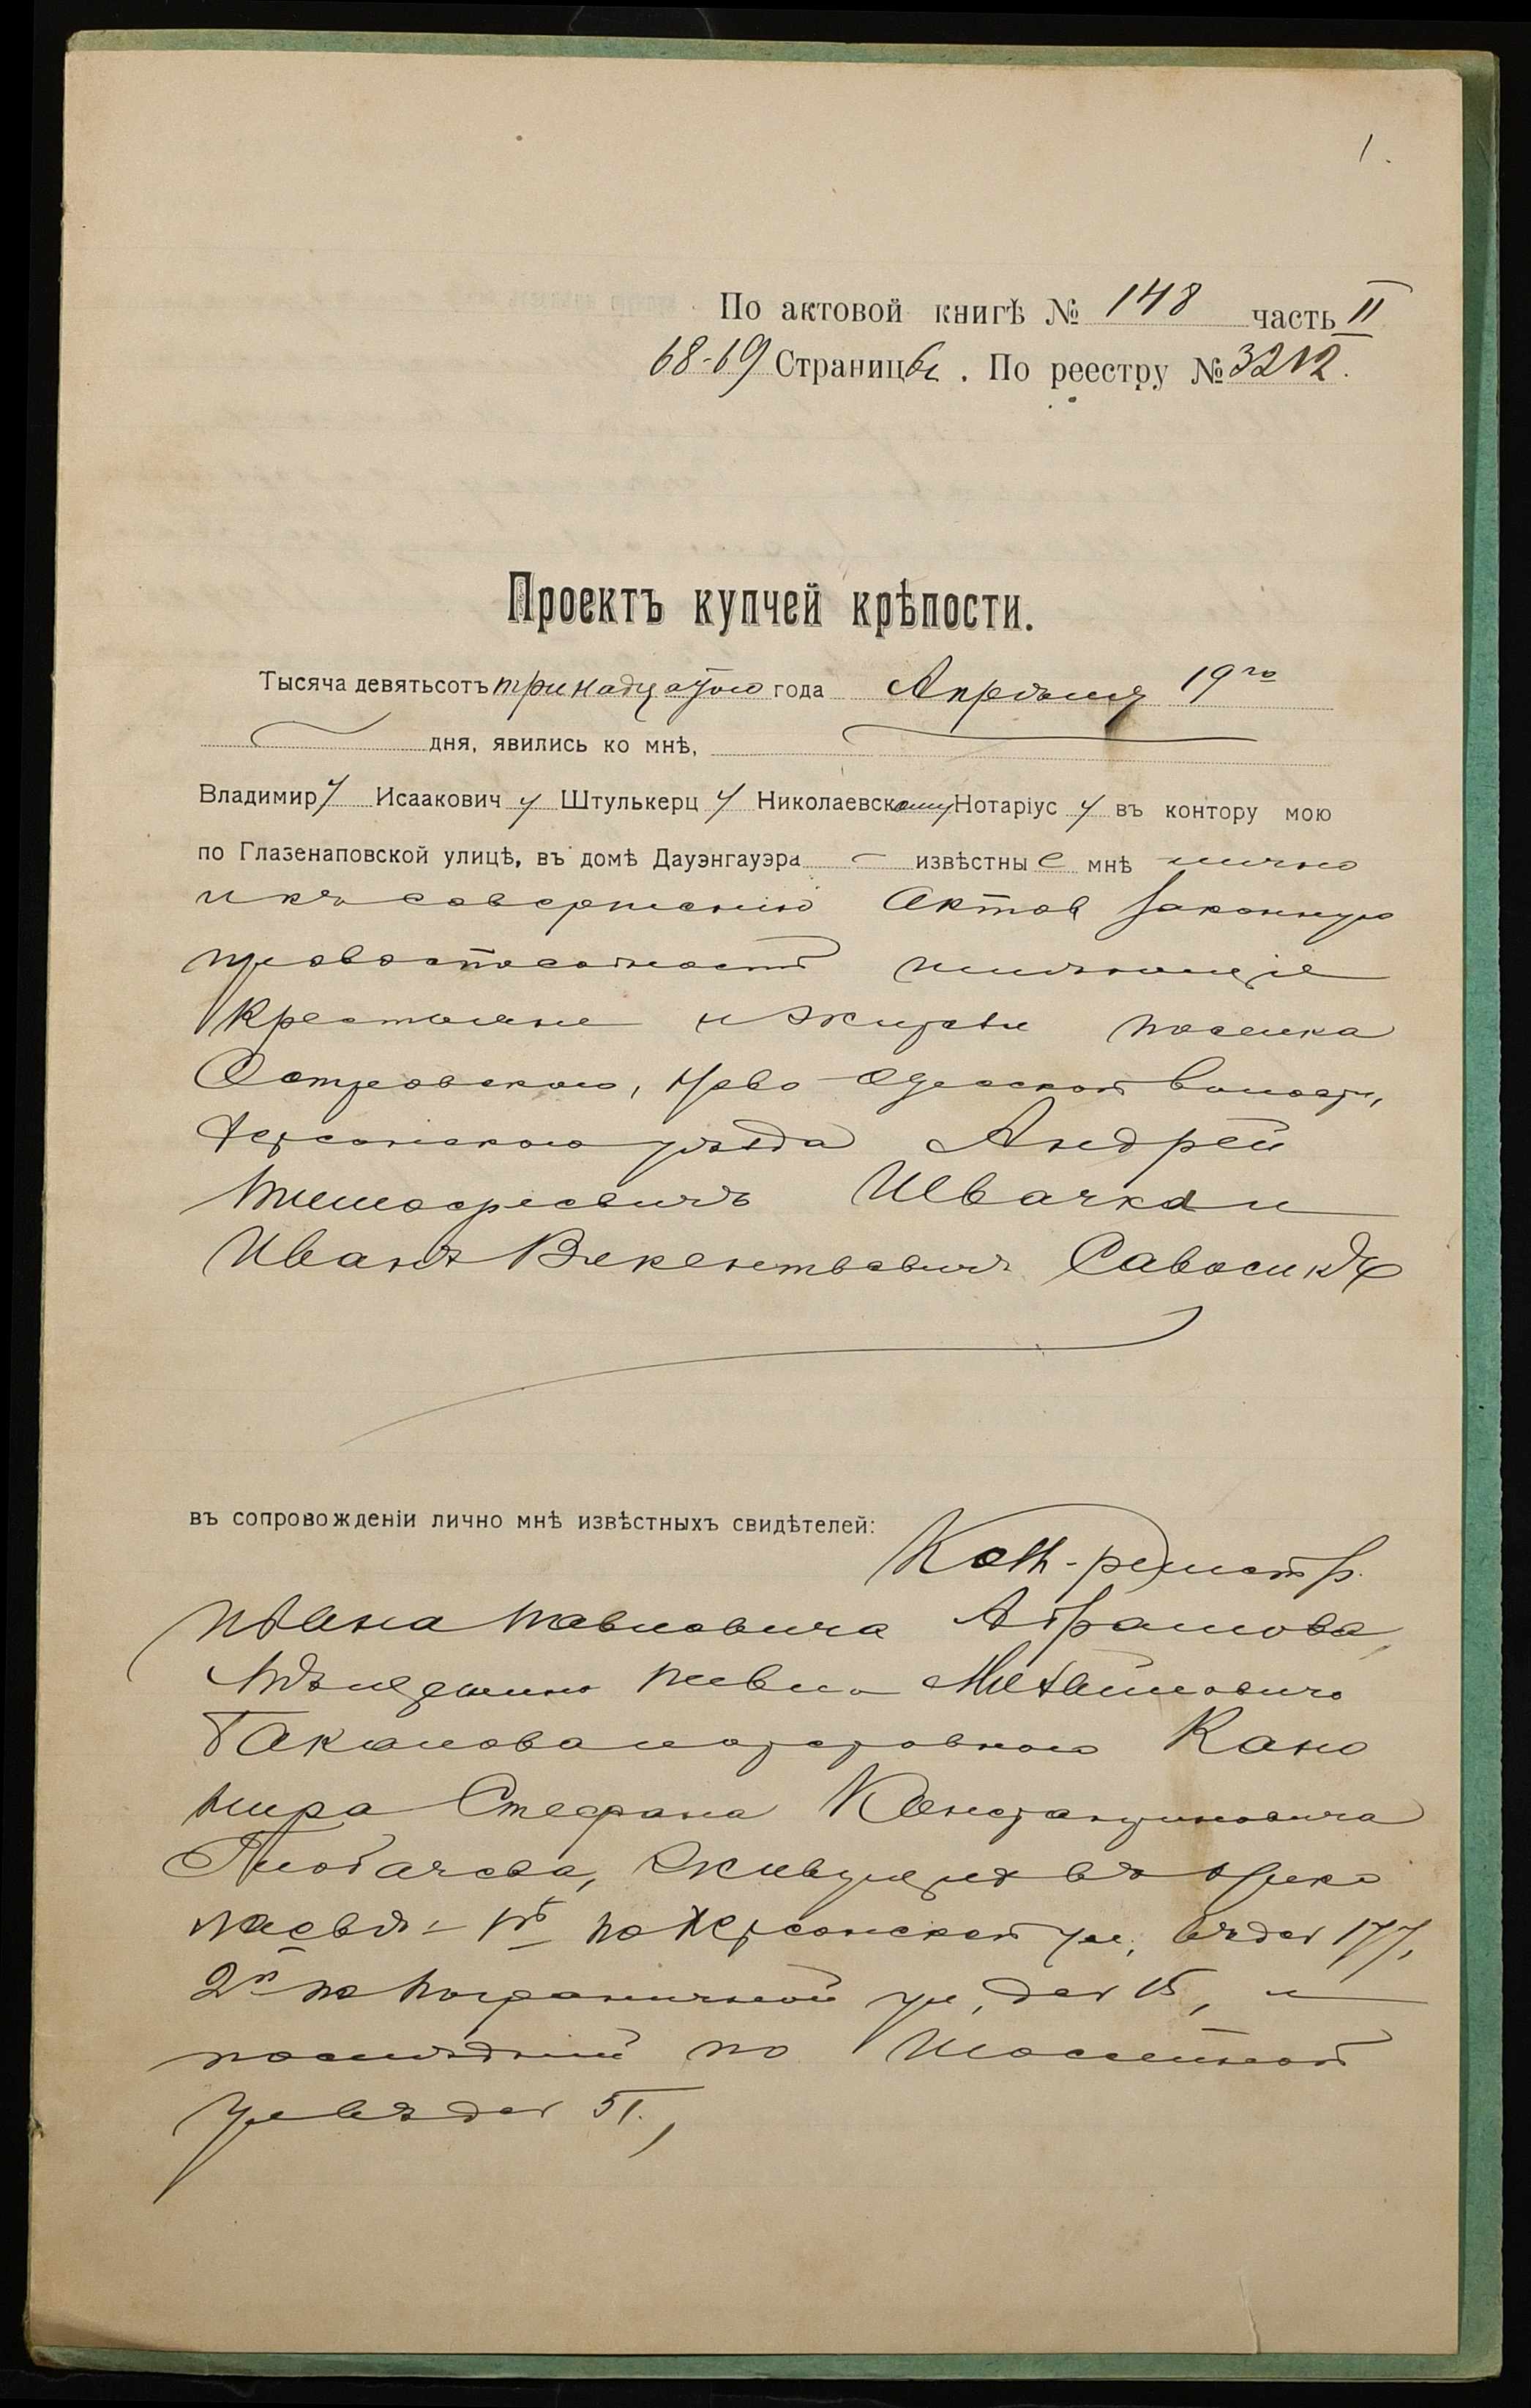 1.
По актовой книгѣ № 148 часть II
68-69 Страницы. По реестру № 3212.
Проектъ купчей крѣпости.
Тысяча девятьсотъ тринадцатого года Апрѣля 19го
дня, явились ко мнѣ,
Владимиру Исааковичу Штулькерцу Николаевскому Нотаріусу въ контору мою
по Глазенаповской улицѣ, въ домѣ Дауэнгауэра извѣстные мнѣ лично
и къ совершенію актовъ законную
правоспособность имѣющіе
Крестьяне и жители поселка
Островского, Ново-Одесской волости,
Херсонского уѣзда Андрей
Тимофеевичъ Швачка и
Иванъ Викентьевичъ
въ сопровожденіи лично мнѣ извѣстныхъ свидѣтелей:
Кол.-регистр.
Ивана Павловича Абрамова,
Мѣщанина
Стефана Константиновича
живущихъ въ Нико
лаевѣ: 1й по Херсонской ул., въ д № 177,
2й по Пограничной ул, д № 15, и
послѣдній по
ул въ д № 51,